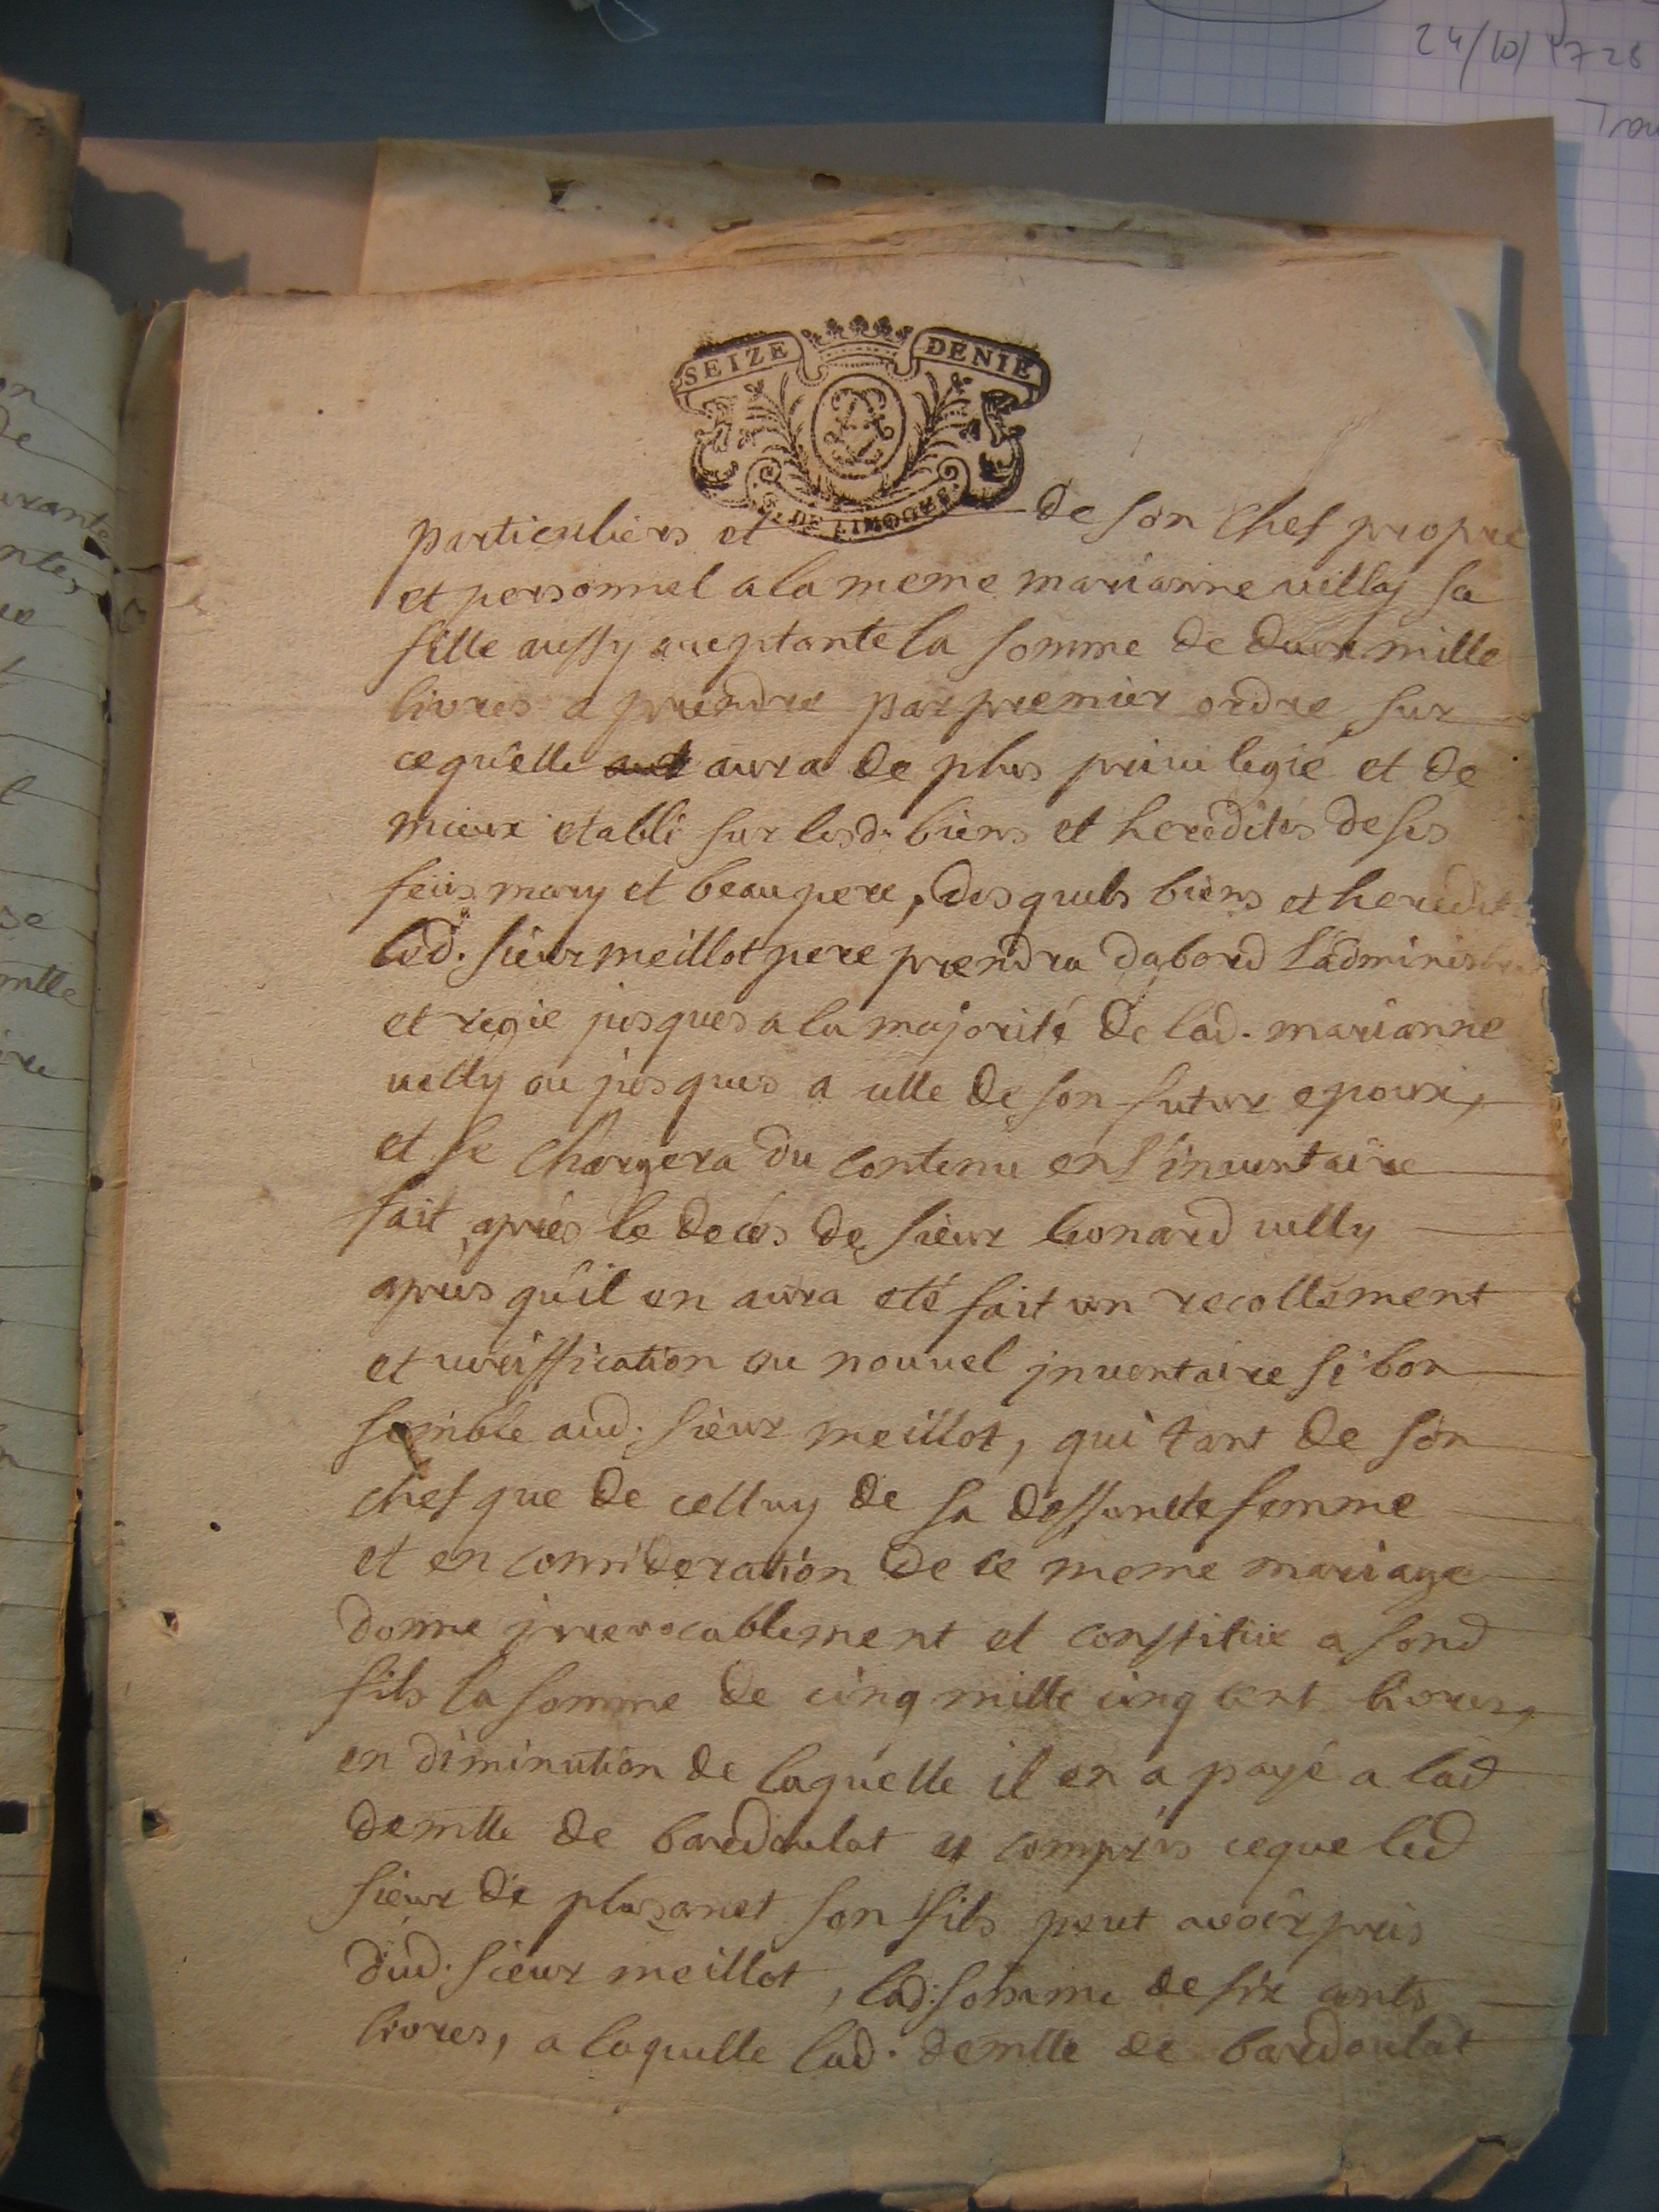 24/10/1728
SEIZE DENIE
G. DE LIMOGES
particuliers et de son chef propre
et personnel a la meme marianne velly sa
fille aussy aceptante la somme de deux mille
livres a prendre par premier ordre sur
ce qu'elle aura de plus privilegié et de
mieux etabli sur lesd. biens et heredités de ses
feus mary et beau pere, desquels biens et heredit
led. sieur meillot pere prendra dabord l'administra
et regie jusques a la majorité de lad. marianne
velly ou jusques a celle de son futur epoux,
et se chargera du contenu en l'inventaire
fait aprés le decés de sieur leonard velly
apres qu'il en aura eté fait un recollement
et veriffication ou nouvel jnventaire si bon
semble aud. sieur meillot, qui tant de son
chef que de celluy de sa deffuncte femme
et en consideration de ce meme mariage
donne jrrevocablement et constitue a sond
fils la somme de cinq mille cinq cent livres,
en diminution de laquelle il en a payé a lad
demlle de bardoulat y compris ce que led
sieur de plazanet son fils peut avoir pris
dud. sieur meillot, lad. somme de six cents
livres, a laquelle lad. demlle de bardoulat